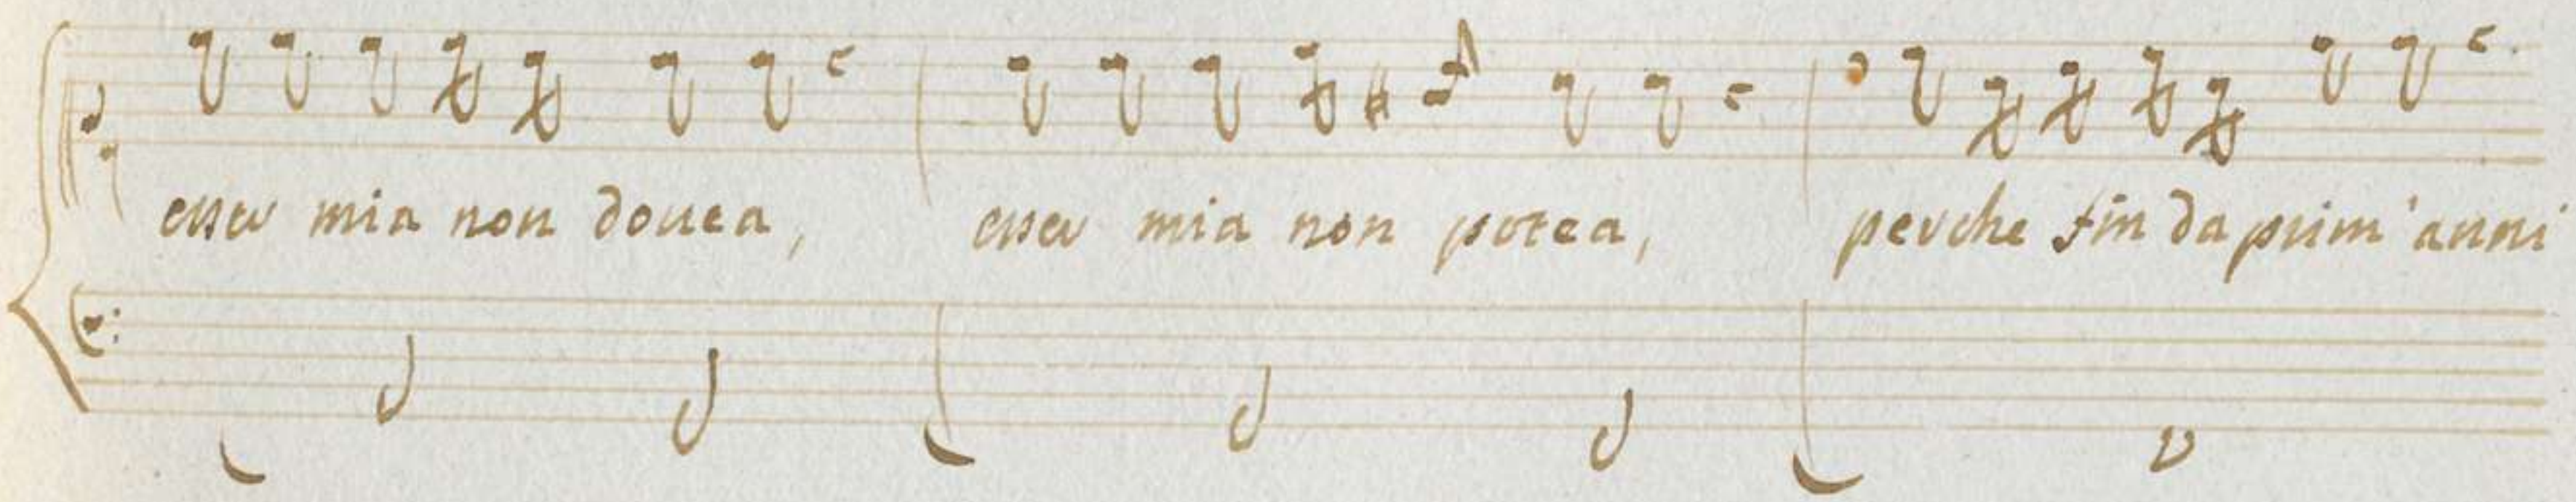 esser mia non douea, esser mia non potea, perche fin da prim'anni